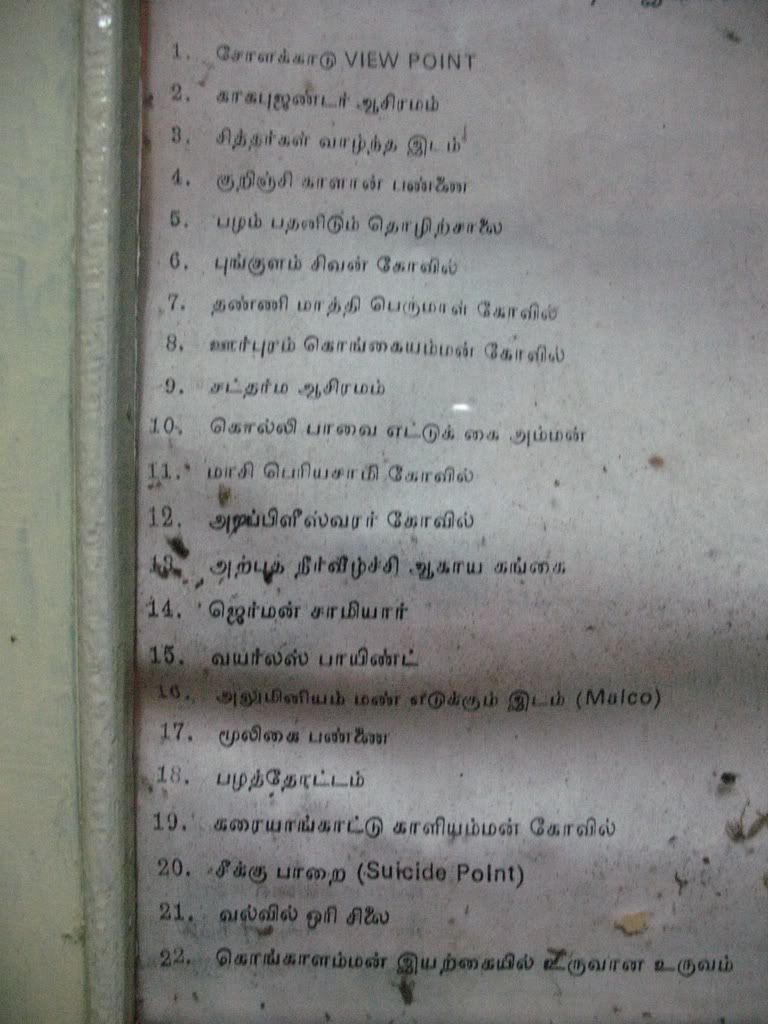 1. சோளக்காடு VIEW POINT
2. காகபுஜண்டர் ஆசிரமம்
3. சித்தர்கள் வாழ்ந்த இடம்
4. குறிஞ்சி காளான் பண்ணை
5. பழம் பதனிடும் தொழிற்சாலை
6. புங்குளம் சிவன் கோவில்
7. தண்ணி மாத்தி பெருமாள் கோவில்
8. ஊர்புரம் கொங்கையம்மன் கோவில்
9. சட்தர்ம ஆசிரமம்
10. கொல்லி பாவை எட்டுக் கை அம்மன்
11. மாசி பெரியசாமி கோவில்
12. அறப்பிளீஸ்வரர் கோவில்
13. அற்புத நீர்வீழ்ச்சி ஆகாய கங்கை
14. ஜெர்மன் சாமியார்
15. வயர்லஸ் பாயிண்ட்
16. அலுமினியம் மண் எடுக்கும் இடம் (Malco)
17. மூலிகை பண்ணை
18. பழத்தோட்டம்
19. கரையாங்காட்டு காளியம்மன் கோவில்
20. சீக்கு பாறை (Suicide Point)
21. வல்வில் ஒரி சிலை
22. கொங்காளம்மன் இயற்கையில் உருவான உருவம்